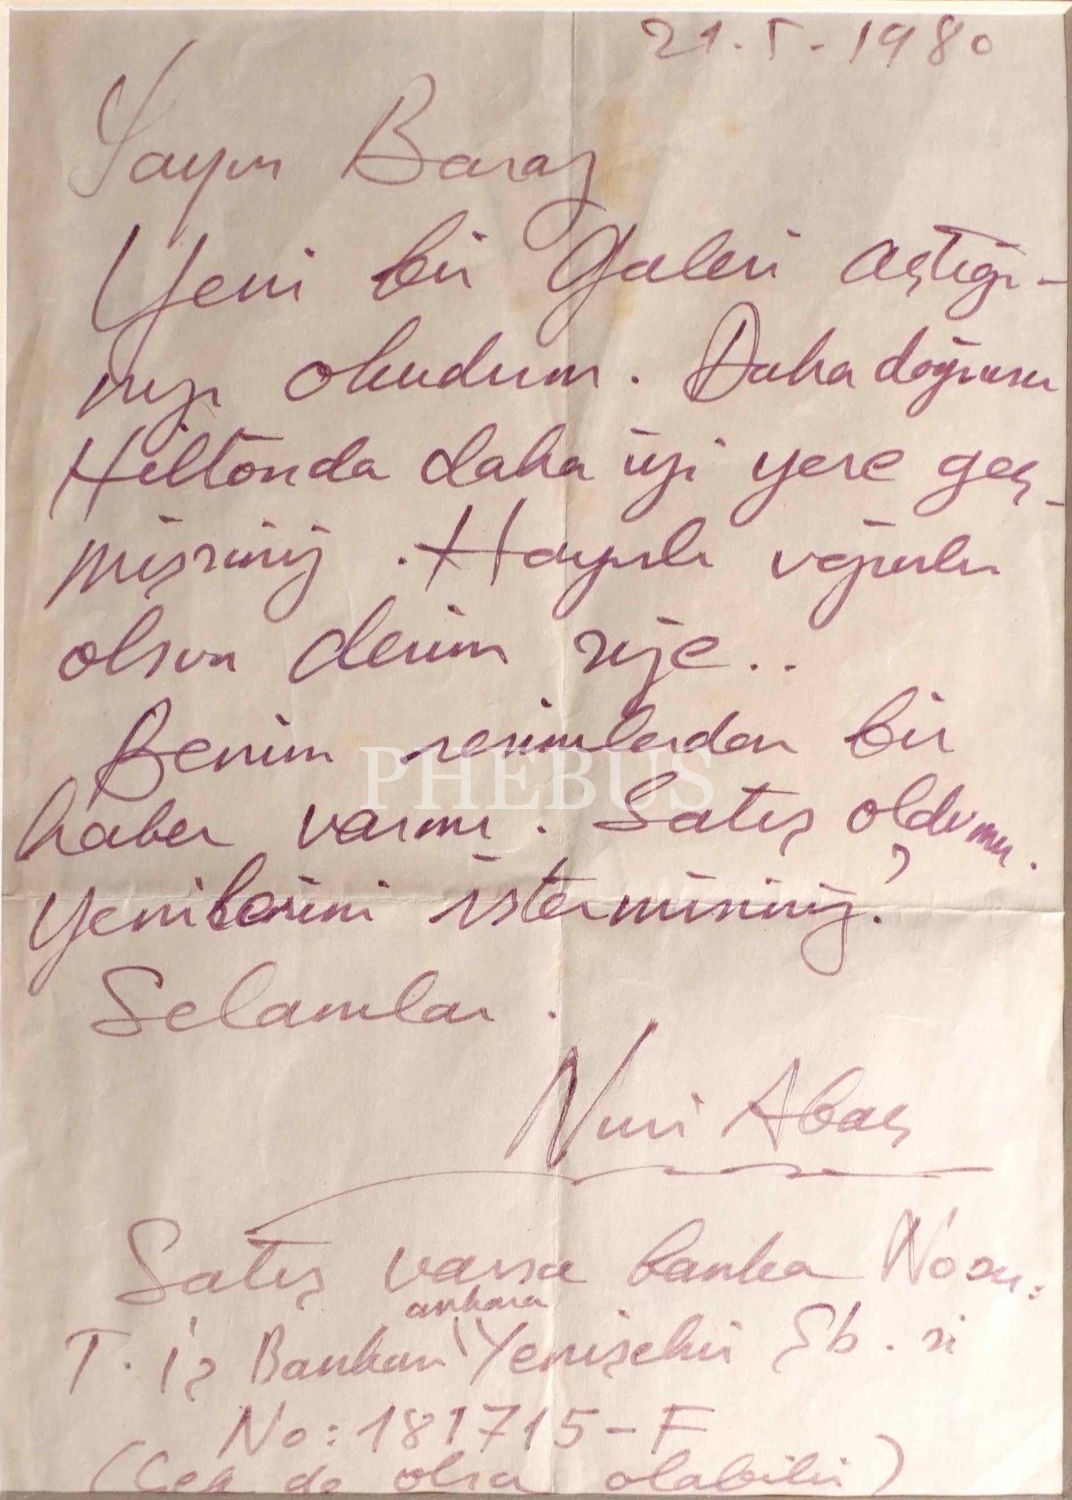 21.5.1980
Sayın Baraz
Yeni bir Galeri açtığı-
nızı okudum. Daha doğrusu
Hiltonda daha iyi yere geç-
mişsiniz. Hayırlı uğurlu
olsun derim size..
Benim resimlerden bir
haber varmı. Satış oldumu.
Yenilerini istermisiniz?
Selamlar.
Nuri Abaç
Satış varsa banka Nosu:
ankara
T. İş Bankası Yenişehir Şb. si
No: 181715-F
(Çek de olsa olabilir)
PHEBUS